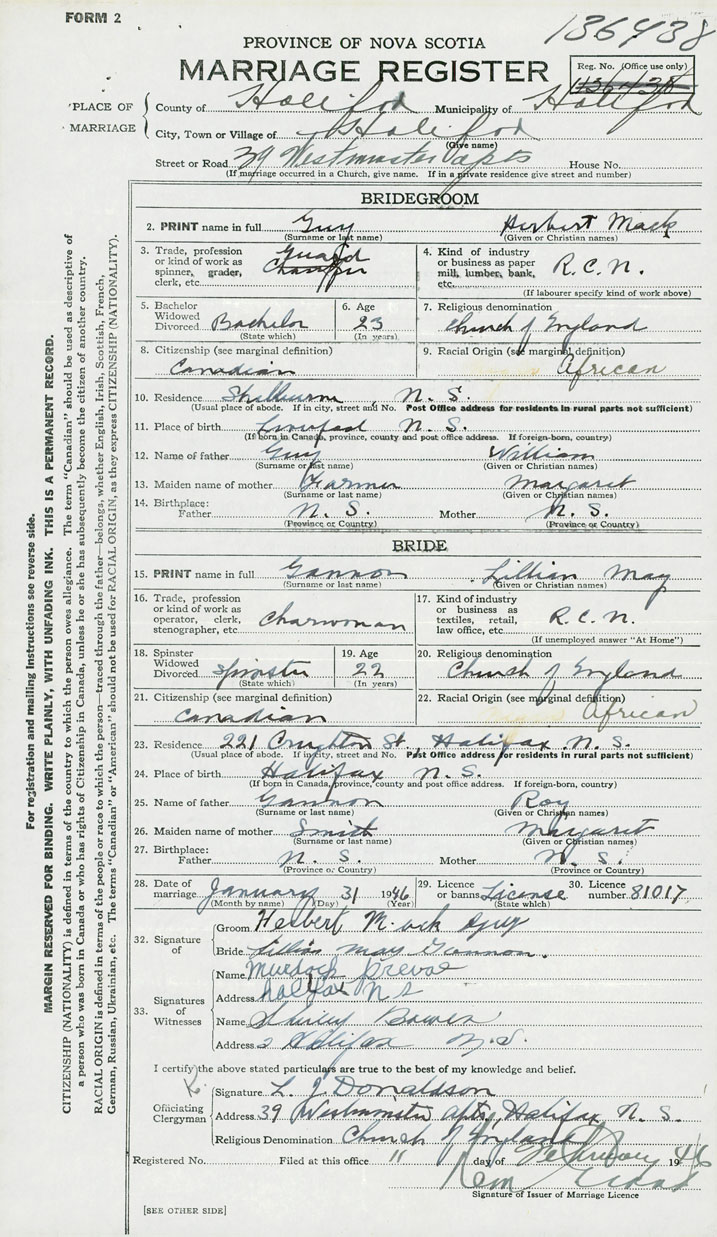 FORM 2
136438
PROVINCE OF NOVA SCOTIA
MARRIAGE REGISTER
Reg. No. (Office use only)
136438
PLACE OF MARRIAGE
County of Halifax Municipality of Halifax
City, Town or Village of Halifax
(Give name)
Street or Road 39 Westminster Apts House No.
(If marriage occurred in a Church, give name. If in a private residence give street and number)
BRIDEGROOM
2. PRINT name in full Guy Herbert Mack
(Surname or last name) (Given or Christian names)
3. Trade, profession or kind of work as spinner, grader, clerk, etc. Guard
4. Kind of industry or business as paper mill, lumber, bank, etc. R.C.N.
(If labourer specify kind of work above)
5. Bachelor Widowed Divorced Bachelor
(State which)
6. Age 23
(In years)
7. Religious denomination Church of England
8. Citizenship (see marginal definition) Canadian
9. Racial Origin (see marginal definition) African
10. Residence Shelburne, N. S.
(Usual place of abode. If in city, street and No. Post Office address for residents in rural parts not sufficient)
11. Place of birth Liverpool N. S.
(If born in Canada, province, county and post office address. If foreign-born, country)
12. Name of father Guy William
(Surname or last name) (Given or Christian names)
13. Maiden name of mother Farmer Margaret
(Surname or last name) (Given or Christian names)
14. Birthplace: Father N. S. Mother N. S.
(Province or Country) (Province or Country)
BRIDE
15. PRINT name in full Gannon Lillian May
(Surname or last name) (Given or Christian names)
16. Trade, profession or kind of work as operator, clerk, stenographer, etc. Charwoman
17. Kind of industry or business as textiles, retail, law office, etc. R.C.N.
(If unemployed answer "At Home")
18. Spinster Widowed Divorced Spinster
(State which)
19. Age 22
(In years)
20. Religious denomination Church of England
21. Citizenship (see marginal definition) Canadian
22. Racial Origin (see marginal definition) African
23. Residence 221 Creighton St, Halifax N. S.
(Usual place of abode. If in city, street and No. Post Office address for residents in rural parts not sufficient)
24. Place of birth Halifax N. S.
(If born in Canada, province, county and post office address. If foreign-born, country)
25. Name of father Gannon Roy
(Surname or last name) (Given or Christian names)
26. Maiden name of mother Smith Margaret
(Surname or last name) (Given or Christian names)
27. Birthplace: Father N. S. Mother N. S.
(Province or Country) (Province or Country)
28. Date of marriage January 31 1946
(Month by name) (Day) (Year)
29. Licence or banns License
(State which)
30. Licence number 81017
32. Signature of
Groom Herbert Mack Guy
Bride Lillian May Gannon.
33. Signatures of Witnesses
Name Murdoch
Address Halifax N S
Name Shirley Bowen
Address Halifax N.S.
I certify the above stated particulars are true to the best of my knowledge and belief.
Officiating Clergyman
Signature L. J. Donaldson
Address 39 Westminster Apts, Halifax N. S.
Religious Denomination Church of England
Registered No. Filed at this office 11 day of February 1946
Signature of Issuer of Marriage Licence
[SEE OTHER SIDE]
For registration and mailing instructions see reverse side.
MARGIN RESERVED FOR BINDING. WRITE PLAINLY, WITH UNFADING INK. THIS IS A PERMANENT RECORD.
CITIZENSHIP (NATIONALITY) is defined in terms of the country to which the person owes allegiance. The term "Canadian" should be used as descriptive of
a person who was born in Canada or who has rights of Citizenship in Canada, unless he or she has subsequently become the citizen of another country.
RACIAL ORIGIN is defined in terms of the people or race to which the person—traced through the father—belongs, whether English, Irish, Scottish, French,
German, Russian, Ukrainian, etc. The terms "Canadian" or "American" should not be used for RACIAL ORIGIN, as they express CITIZENSHIP (NATIONALITY).